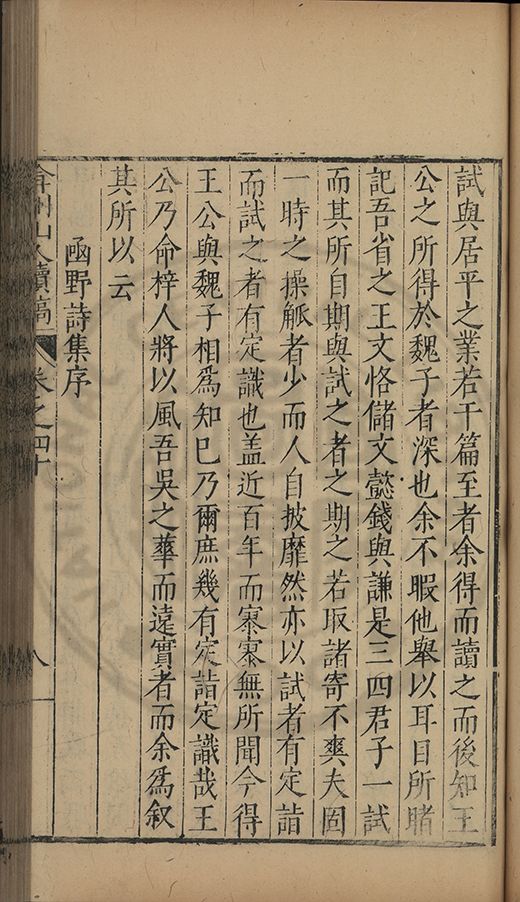 試與居平之業若干篇至者余得而讀之而後知王
公之所得於魏子者深也余不暇他舉以耳目所睹
記吾省之王文恪儲文懿錢與謙是三四君子一試
而其所自期與試之者之期之若取諸寄不爽夫固
一時之操觚者少而人自披靡然亦以試者有定詣
而試之者有定識也盖近百年而寥寥無所聞今得
王公與魏子相爲知巳乃爾庶幾有定詣定識哉王
公乃命梓人將以風吾吳之華而遠實者而余爲叙
其所以云
凾野詩集序
弇州山人續稿 卷之四十 八